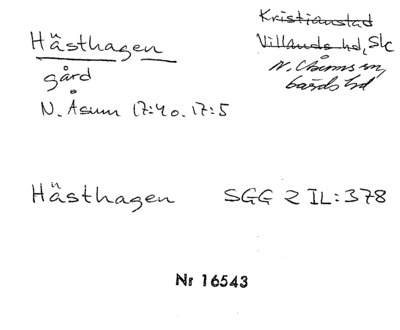 Hästhagen
gård
N. Åsum 17:40. 17:5
Kristianstad
Villands hd, Skc
N. Åsums sn,
Gärds hd
Hästhagen SGG 2 IL:378
Nr 16543